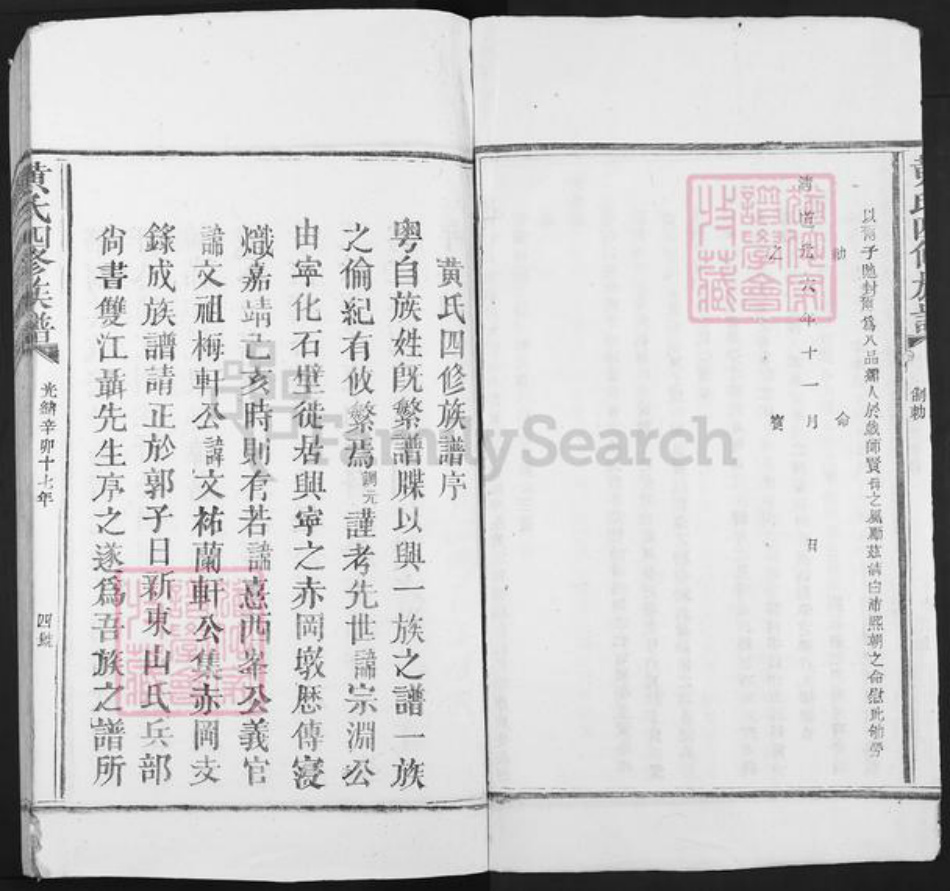 黃氏四修族譜
制勅
以爾子貤封爾為八品孺人於戲師賢母之風勵茲清白沛熙朝之命慰此劬勞
勅命
清道光六年十一月 日
之寶
黃氏四修族譜序
粵自族姓既繁譜牒以興一族之譜一族
之倫紀有攸繫焉訓元謹考先世諱宗淵公
由寧化石壁徙居興寧之赤岡墩歷傳寖
熾嘉靖己亥時則有若諱熹西峯公義官
諱文祖梅軒公諱文祐蘭軒公集赤岡支
錄成族譜請正於郭子日新東山氏兵部
尙書雙江聶先生序之遂爲吾族之譜所
黃氏四修族譜
光緒辛卯十七年
四號
FamilySearch
譜學會
收藏